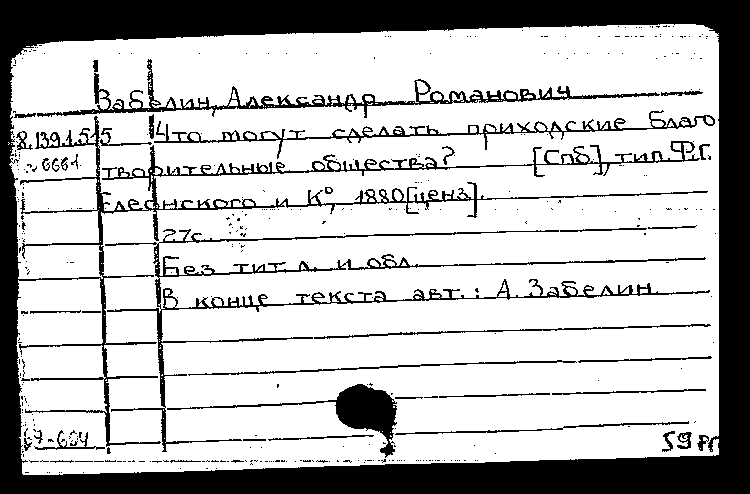 Забелин, Александр Романович
8.139.1.515 Что могут сделать приходские благо-
творительные общества? [Спб], тип. Ф.Г.
Елеонского и К°, 1880 [ценз].
27с.
Без тит. л. и обл.
В конце текста авт.: А. Забелин.
67-604